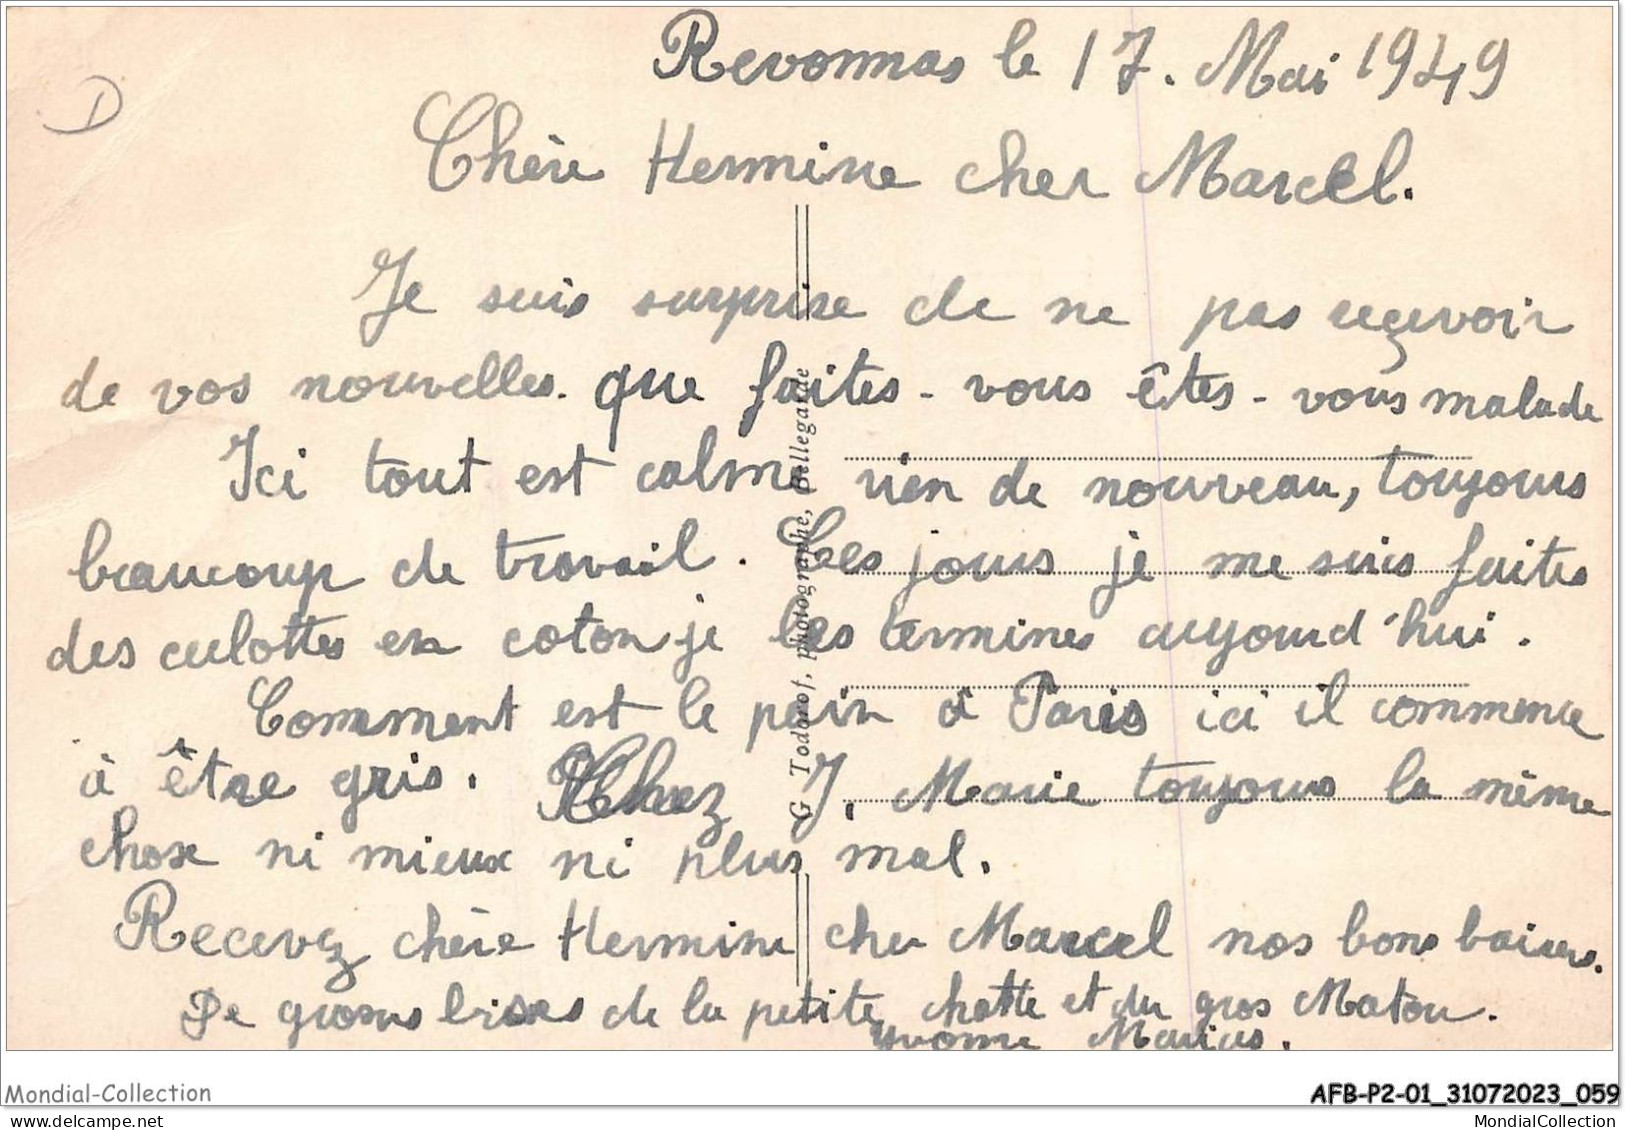 Revonnas le 17. Mai 1949
D
Chère Hermine cher Marcel.
Je suis surprise de ne pas reçevoir
de vos nouvelles. que faites-vous êtes-vous malade
Ici tout est calme rien de nouveau, toujours
beaucoup de travail. Ces jours je me suis faites
des culottes en coton je les termines aujourd'hui.
Comment est le pain à Paris ici il commence
à être gris. Chez J. Marie toujours la même
chose ni mieux ni plus mal.
Recevez chère Hermine cher Marcel nos bons baisers.
De grosses bises de la petite chatte et du gros Matou.
Yvonne Marius.
G Todorof, photographe, Bellegarde
Mondial-Collection
AFB-P2-01_31072023_059
MondialCollection